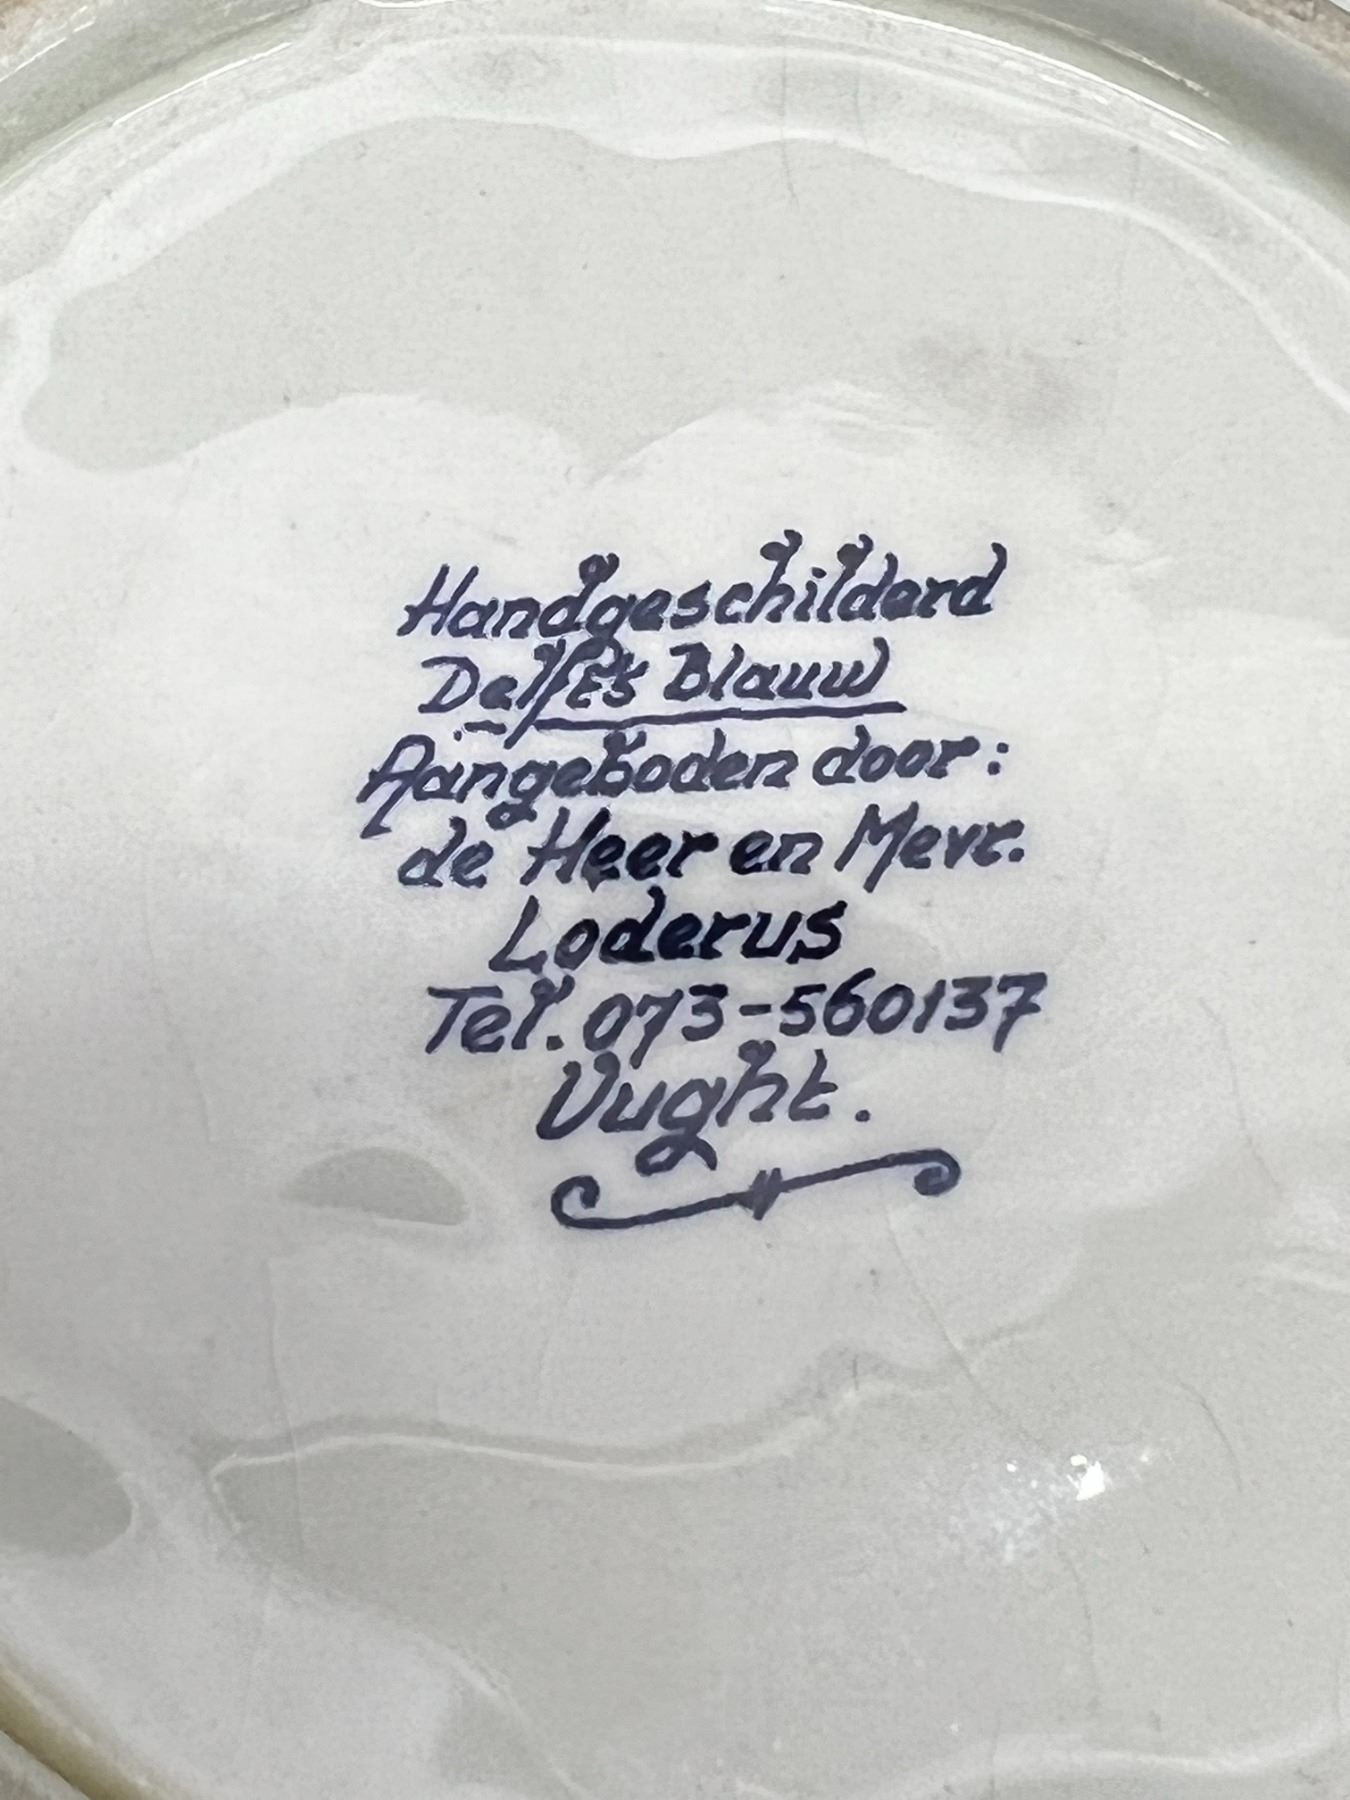 Handgeschilderd
Delfts Blauw
Aangeboden door:
de Heer en Mevr.
Loderus
Tel. 073-560137
Vught.